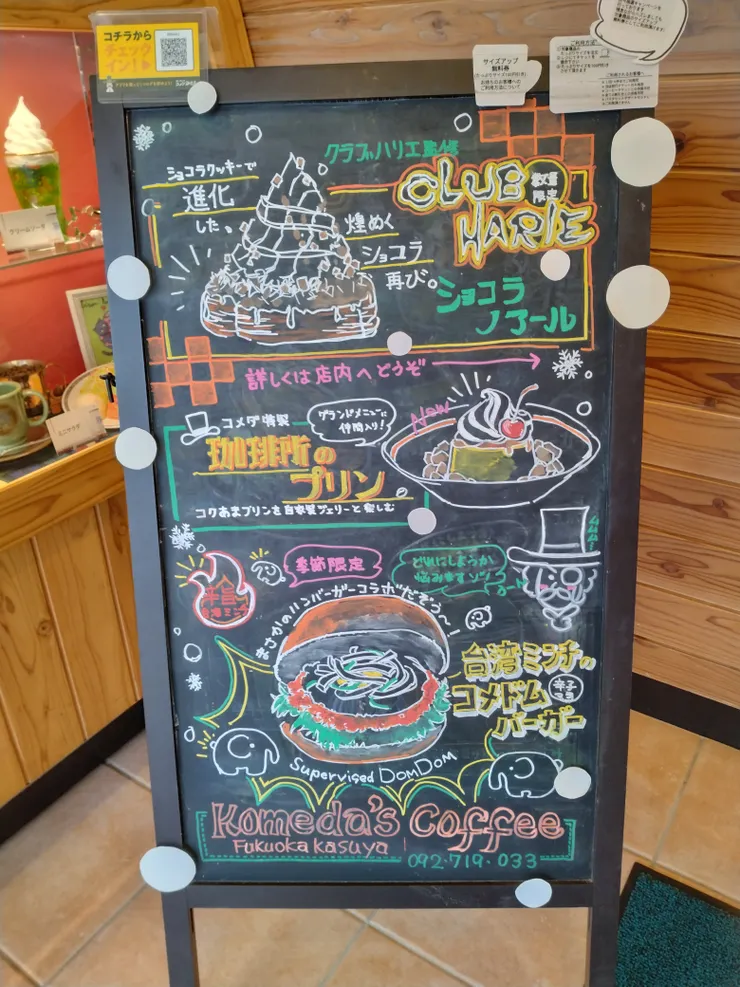 コチラから
チェック
イン!
サイズアップ
無料券
ご利用方法について
クラブハリエ監修
CLUB
HARIE
数量
限定
ショコラクッキーで
進化
した。
煌めく
ショコラ
再び。
ショコラ
ノアール
詳しくは店内へどうぞ
コメダ特製
グランドメニューに
仲間入り!
New
珈琲所の
プリン
コクあまプリンを自家製ジェリーと楽しむ
クリームソーダ
ミニサラダ
辛旨
台湾ミンチ
季節限定
どれにしようか
悩みますゾ
まさかのハンバーガーコラボだぞぅ〜!
台湾ミンチの
コメドム
バーガー
Supervised DOMDOM
Komeda's Coffee
Fukuoka kasuya
092・719・033